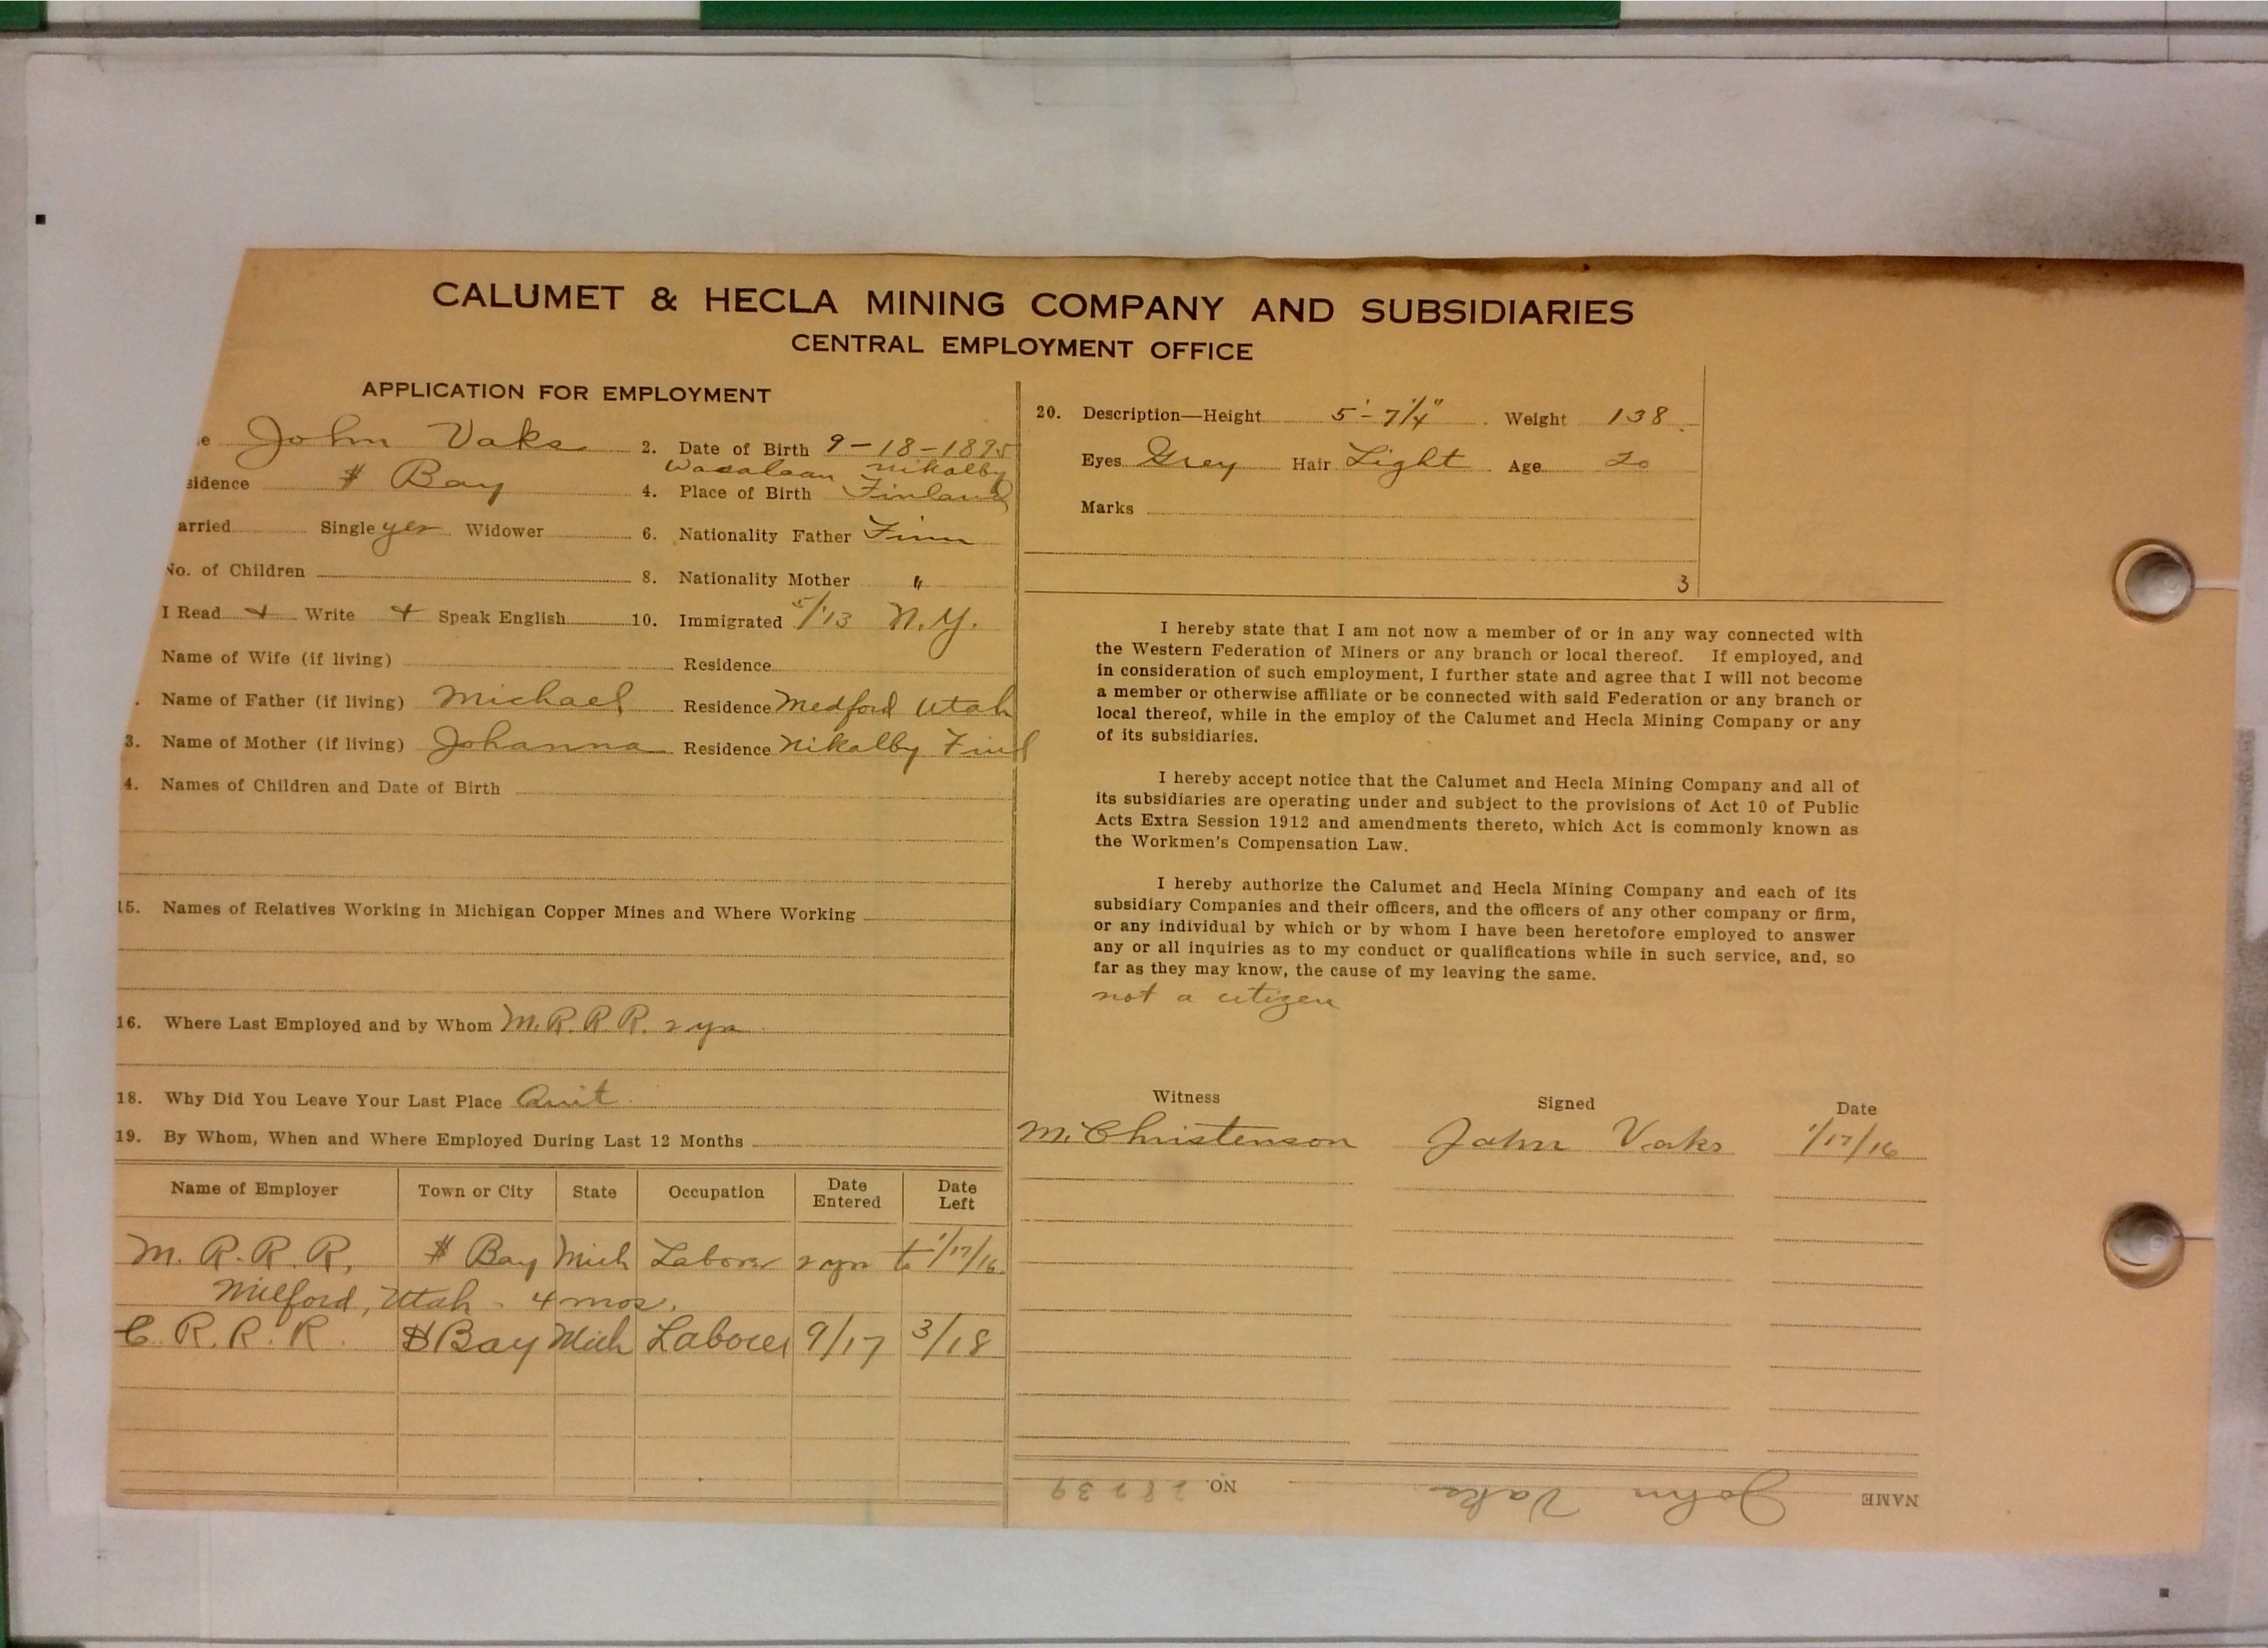 CALUMET & HECLA MINING COMPANY AND SUBSIDIARIES
CENTRAL EMPLOYMENT OFFICE
APPLICATION FOR EMPLOYMENT
e John Vaks 2. Date of Birth 9-18-1895
sidence # Bay 4. Place of Birth Wasalaan Nikalby Finland
arried Single yes Widower 6. Nationality Father Finn
No. of Children 8. Nationality Mother "
I Read + Write + Speak English 10. Immigrated 5/13 N.Y.
Name of Wife (if living) Residence
. Name of Father (if living) Michael Residence Medford Utah
3. Name of Mother (if living) Johanna Residence Nikalby Finl
4. Names of Children and Date of Birth
15. Names of Relatives Working in Michigan Copper Mines and Where Working
16. Where Last Employed and by Whom M.R.R.R. 2 yrs
18. Why Did You Leave Your Last Place Quit
19. By Whom, When and Where Employed During Last 12 Months
Name of Employer Town or City State Occupation Date Entered Date Left
M. R. R. R. # Bay Mich Labor 2 yrs to 1/17/16
Milford, Utah - 4 mos.
C. R. R. R. # Bay Mich Laborer 9/17 3/18
20. Description—Height 5'-7¼" Weight 138
Eyes Grey Hair Light Age 20
Marks
3
I hereby state that I am not now a member of or in any way connected with
the Western Federation of Miners or any branch or local thereof. If employed, and
in consideration of such employment, I further state and agree that I will not become
a member or otherwise affiliate or be connected with said Federation or any branch or
local thereof, while in the employ of the Calumet and Hecla Mining Company or any
of its subsidiaries.
I hereby accept notice that the Calumet and Hecla Mining Company and all of
its subsidiaries are operating under and subject to the provisions of Act 10 of Public
Acts Extra Session 1912 and amendments thereto, which Act is commonly known as
the Workmen's Compensation Law.
I hereby authorize the Calumet and Hecla Mining Company and each of its
subsidiary Companies and their officers, and the officers of any other company or firm,
or any individual by which or by whom I have been heretofore employed to answer
any or all inquiries as to my conduct or qualifications while in such service, and, so
far as they may know, the cause of my leaving the same.
not a citizen
Witness Signed Date
M. Christenson John Vaks 1/17/16
NAME John Vaks NO. 28239